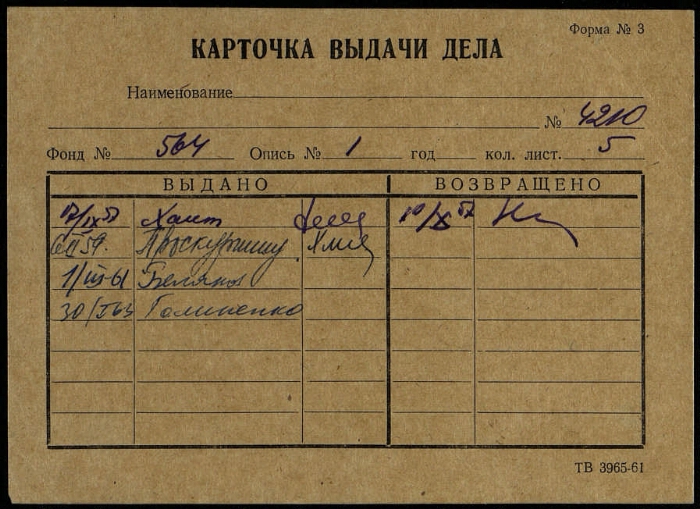 Форма № 3
КАРТОЧКА ВЫДАЧИ ДЕЛА
Наименование
№ 4210
Фонд № 564 Опись № 1 год кол. лист. 5
ВЫДАНО ВОЗВРАЩЕНО
17/IX 57 Хаит 10/X 57
6/II 59. Проскурякову
1/III-61 Беляков
30/I 63 Галиненко
ТВ 3965-61